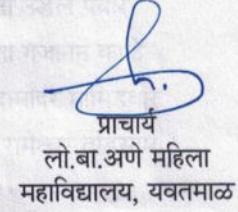 प्राचार्य
लो.बा.अणे महिला
महाविद्यालय, यवतमाळ